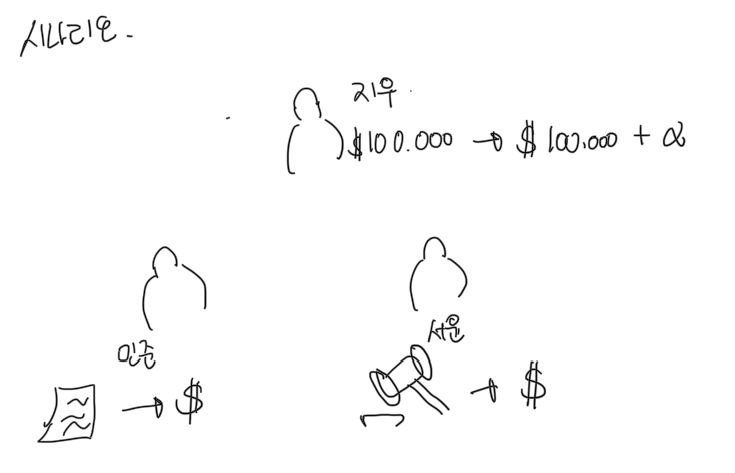 시나리오.
지우.
$100.000 → $100.000 + α
민준
서윤
→ $
→ $